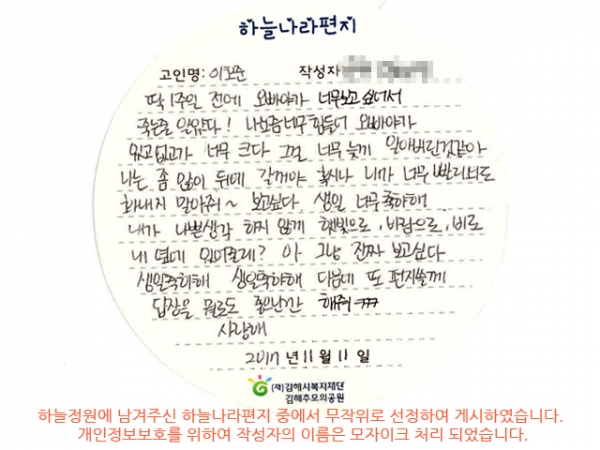 하늘나라편지
고인명: 이호준 작성자:
딱 1주일 전에 오빠야가 너무보고 싶어서
죽는줄 알았다! 나요즘너무힘들어 오빠야가
있고없고가 너무 크다 그걸 너무 늦게 알아버린것같아
나는 좀 많이 뒤에 갈꺼야 혹시나 내가 너무 빨리가도
화내지 말아줘~ 보고싶다. 생일 너무축하해
내가 나쁜생각 하지 않게 햇빛으로, 바람으로, 비로
내 옆에 있어줄래? 아 그냥 진짜 보고싶다
생일축하해 생일축하해 다음에 또 편지쓸게
답장을 뭐로도 좋난간 해줘 ㅋㅋㅋ
사랑해
2017 년 11 월 11 일
(재)김해시복지재단
김해추모의공원
하늘정원에 남겨주신 하늘나라편지 중에서 무작위로 선정하여 게시하였습니다.
개인정보보호를 위하여 작성자의 이름은 모자이크 처리 되었습니다.